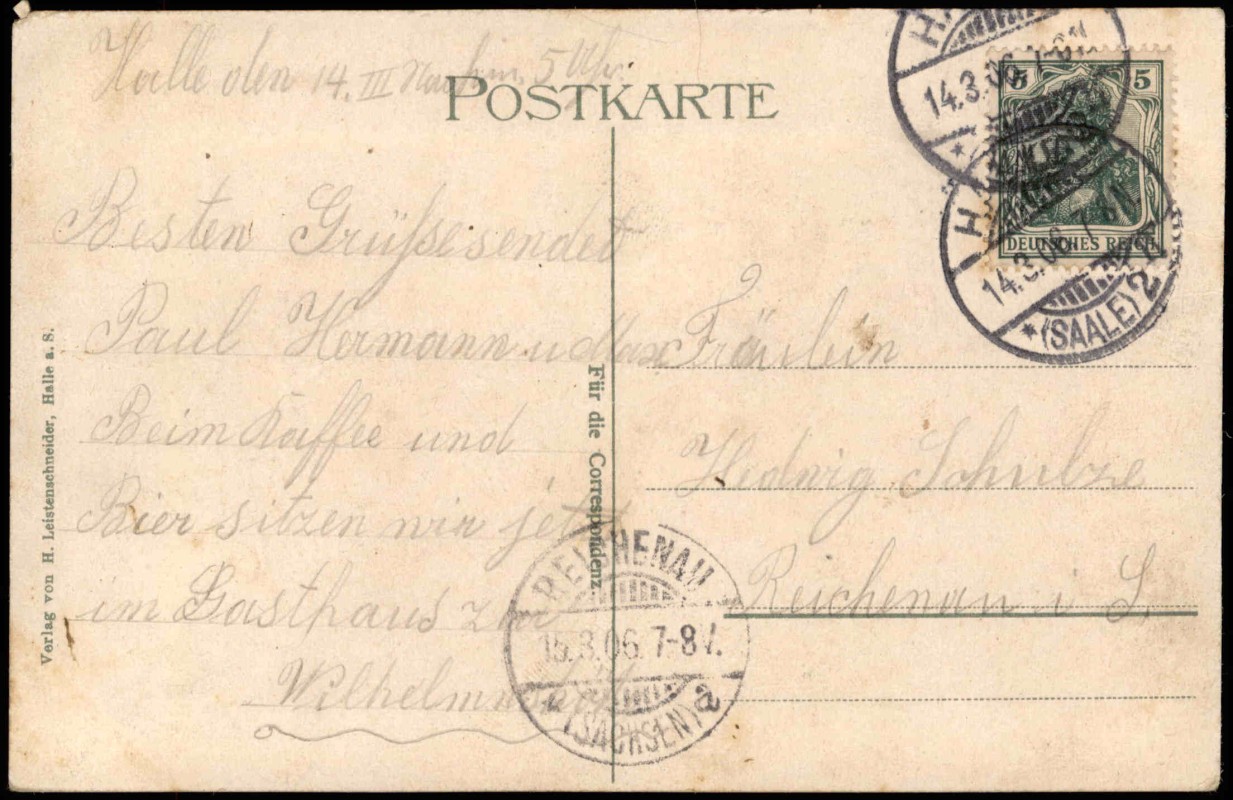 Halle den 14. III Nachm. 5 Uhr.
POSTKARTE
Besten Grüße sendet
Paul Hermann u Max
Beim Kaffee und
Bier sitzen wir jetzt
im Gasthaus zur
Wilhelmshöh
Fräulein
Hedwig Schulze
Reichenau i S.
Für die Correspondenz.
Verlag von H. Leistenschneider, Halle a. S.
5 5
DEUTSCHES REICH
14.3.06. 7-8
14.3.06. 7-8
*(SAALE) 2
REICHENAU
15.3.06. 7-8 V.
(SACHSEN) a